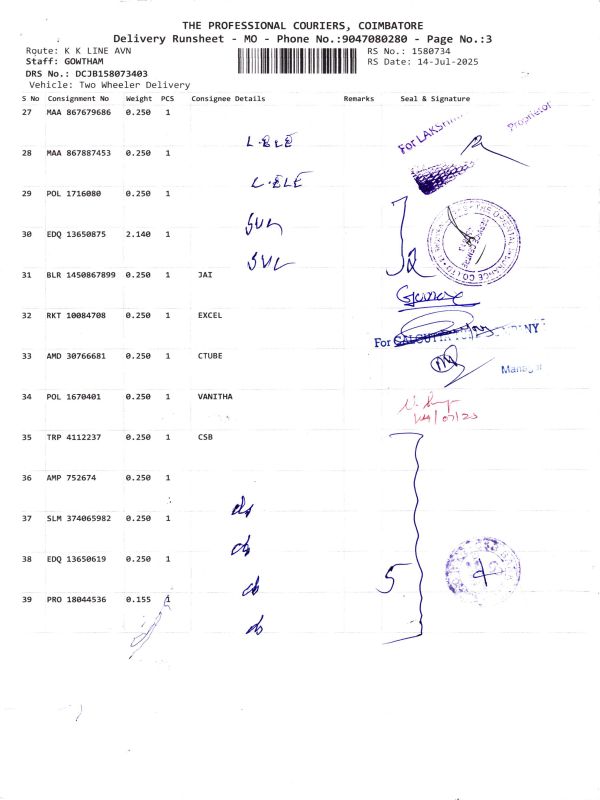 THE PROFESSIONAL COURIERS, COIMBATORE
Delivery Runsheet - MO - Phone No.:9047080280 - Page No.:3
Route: K K LINE AVN
RS No.: 1580734
Staff: GOWTHAM
RS Date: 14-Jul-2025
DRS No.: DCJB158073403
Vehicle: Two Wheeler Delivery
S No Consignment No Weight PCS Consignee Details Remarks Seal & Signature
27 MAA 867679686 0.250 1
For LAKSHMI
Proprietor
L.ELE
28 MAA 867887453 0.250 1
L.ELE
29 POL 1716080 0.250 1
SUL
30 EDQ 13650875 2.140 1
SUL
31 BLR 1450867899 0.250 1 JAI
32 RKT 10084708 0.250 1 EXCEL
For CALCUTTA
33 AMD 30766681 0.250 1 CTUBE
34 POL 1670401 0.250 1 VANITHA
35 TRP 4112237 0.250 1 CSB
36 AMP 752674 0.250 1
do
37 SLM 374065982 0.250 1
do
38 EDQ 13650619 0.250 1
do
5
39 PRO 18044536 0.155 1
do